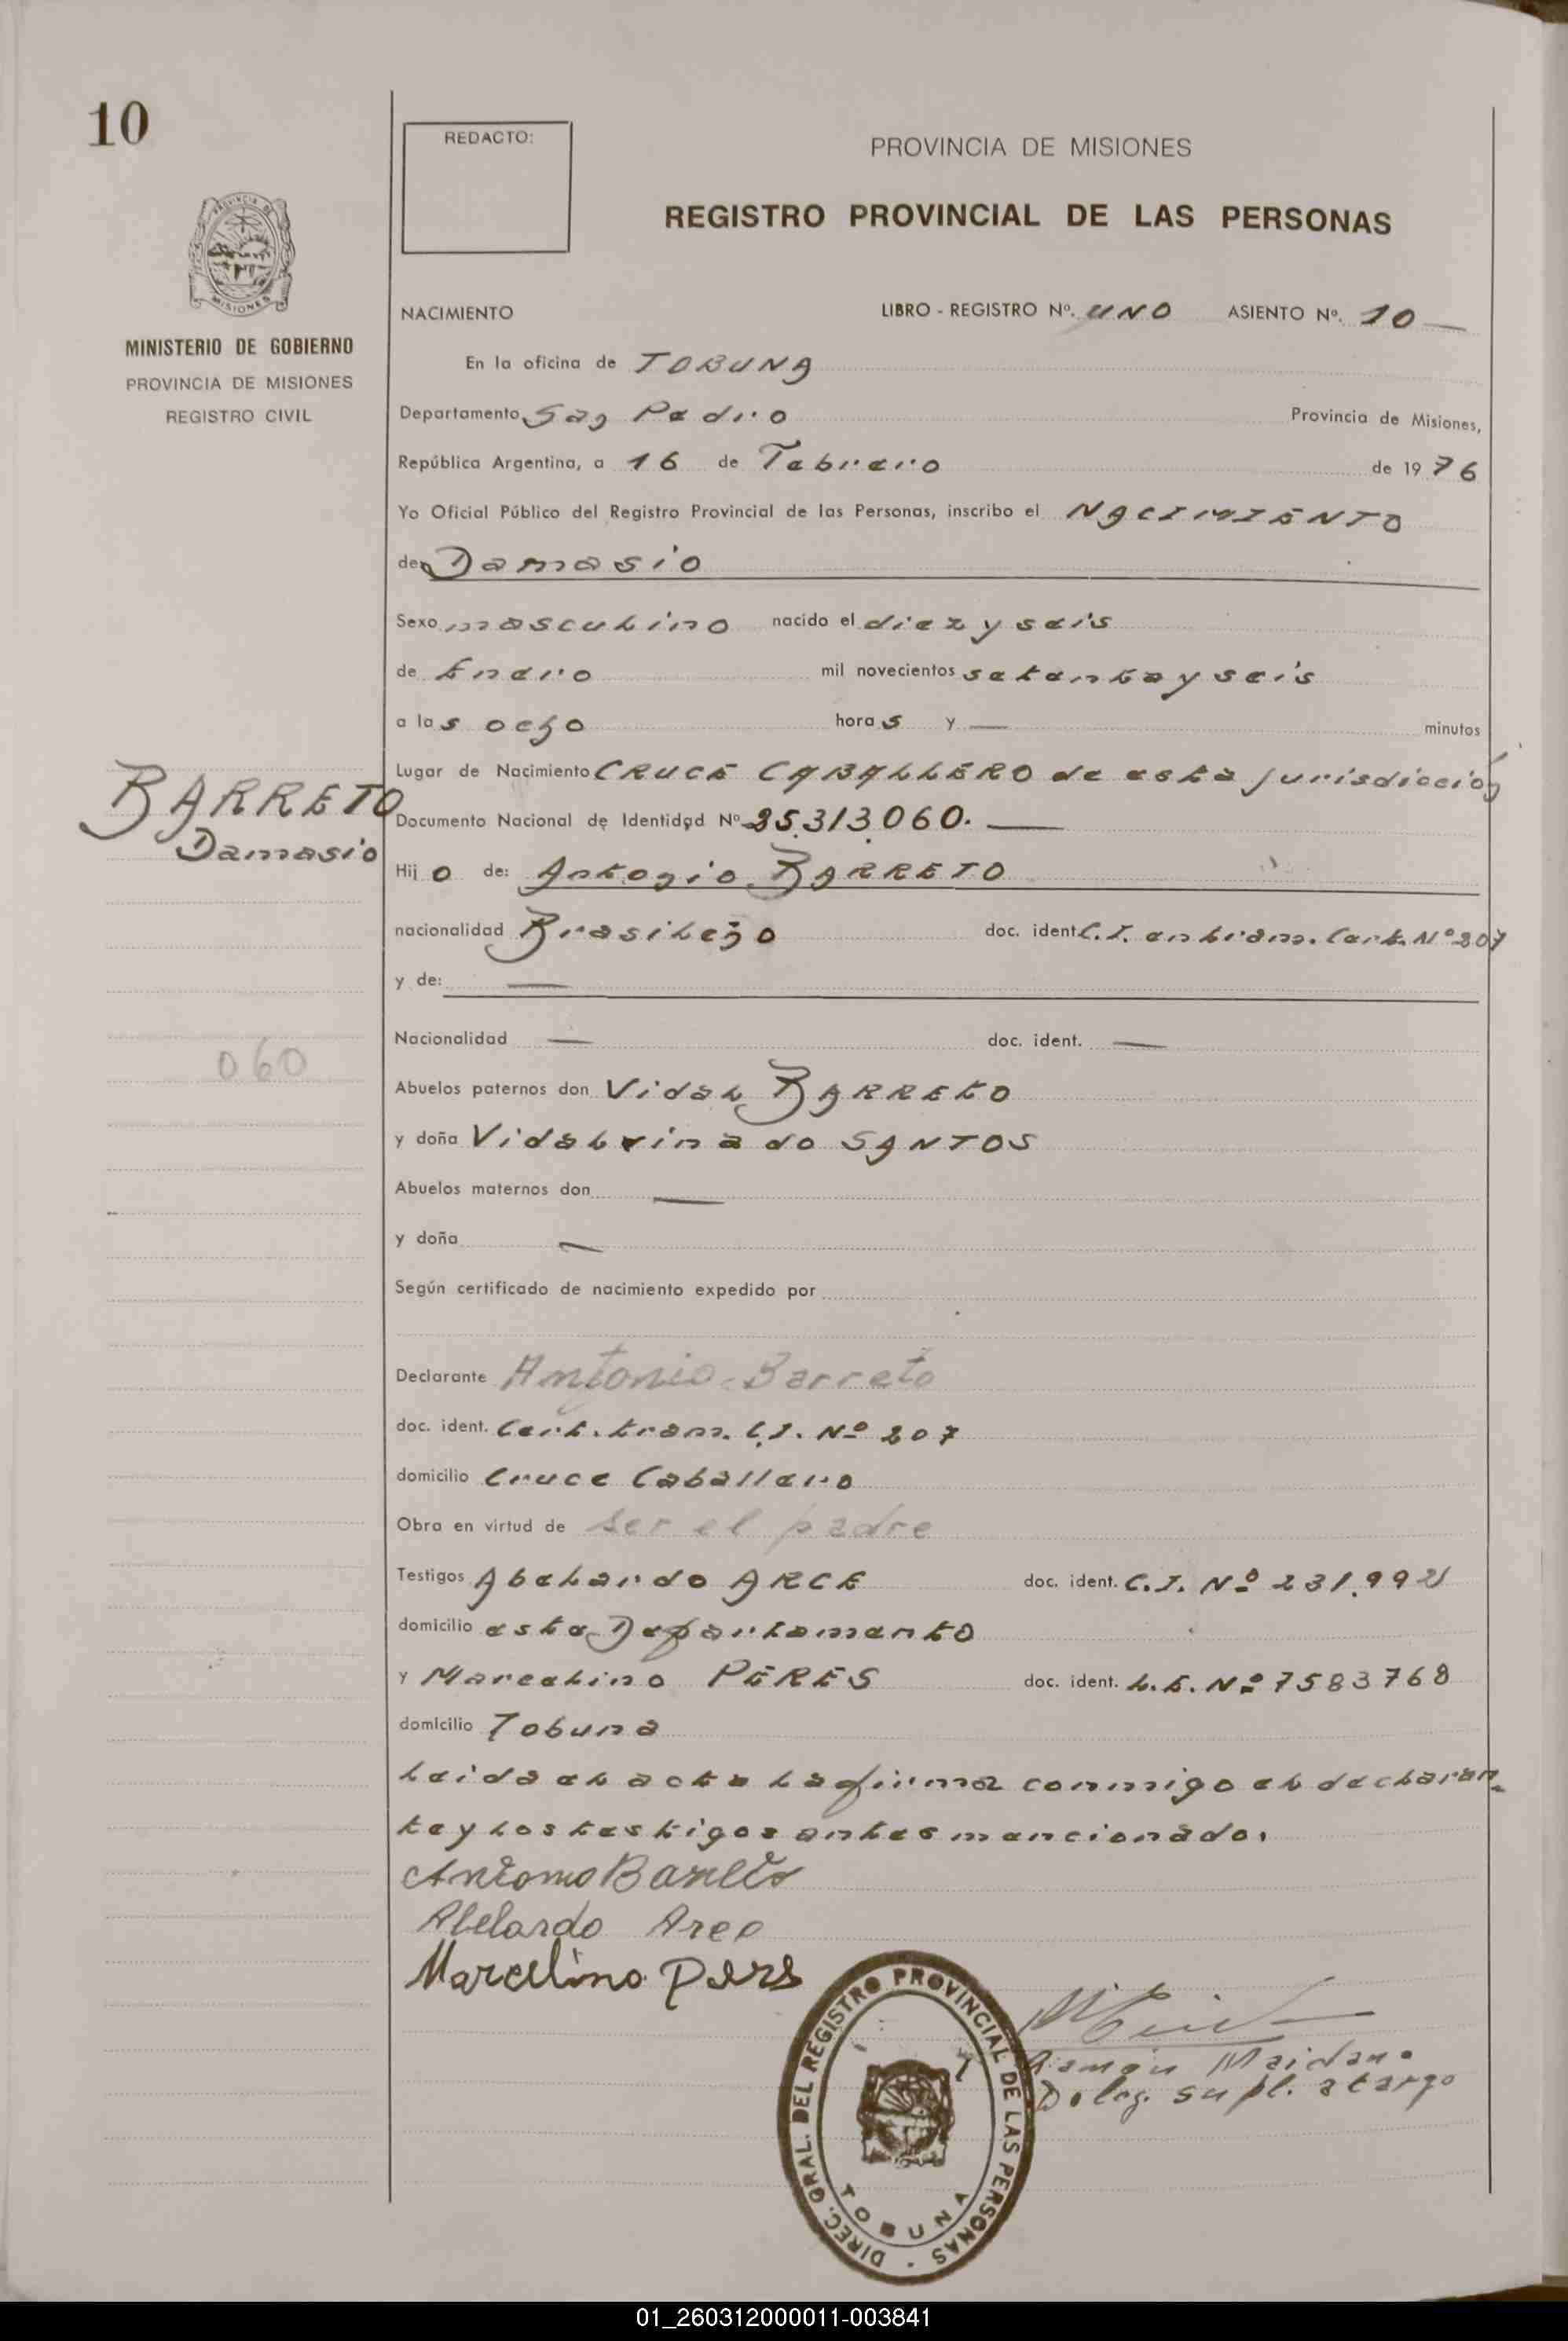 10
REDACTO:
PROVINCIA DE MISIONES
REGISTRO PROVINCIAL DE LAS PERSONAS
PROVINCIA DE
MISIONES
MINISTERIO DE GOBIERNO
PROVINCIA DE MISIONES
REGISTRO CIVIL
NACIMIENTO LIBRO - REGISTRO Nº. UNO ASIENTO Nº. 10 —
En la oficina de TOBUNA
Departamento San Pedro Provincia de Misiones,
República Argentina, a 16 de Febrero de 1976
Yo Oficial Público del Registro Provincial de las Personas, inscribo el NACIMIENTO
de Damasio
Sexo masculino nacido el diez y seis
de Enero mil novecientos setenta y seis
a las ocho horas y — minutos
Lugar de Nacimiento CRUCE CABALLERO de esta jurisdicción
BARRETO
Damasio
Documento Nacional de Identidad Nº 25.313.060. —
Hijo de: Antonio BARRETO
nacionalidad Brasileño doc. ident. C.I. en tram. Cert. Nº 207
y de: —
Nacionalidad — doc. ident. —
060
Abuelos paternos don Vidal BARRETO
y doña Vidalvina do SANTOS
Abuelos maternos don —
y doña —
Según certificado de nacimiento expedido por
Declarante Antonio Barreto
doc. ident. Cert. tram. C.I. Nº 207
domicilio Cruce Caballero
Obra en virtud de ser el padre
Testigos Abelardo ARCE doc. ident. C.I. Nº 231.992
domicilio este Departamento
y Marcelino PERES doc. ident. L.E. Nº 7583768
domicilio Tobuna
Leida el acta la firma conmigo el declaran-
te y los testigos antes mencionado.
Antonio Barreto
Abelardo Arce
Marcelino Peres
DIREC. GRAL. DEL REGISTRO PROVINCIAL DE LAS PERSONAS -
TOBUNA
Ramón Maidana
Deleg. supl. a cargo
01_260312000011-003841